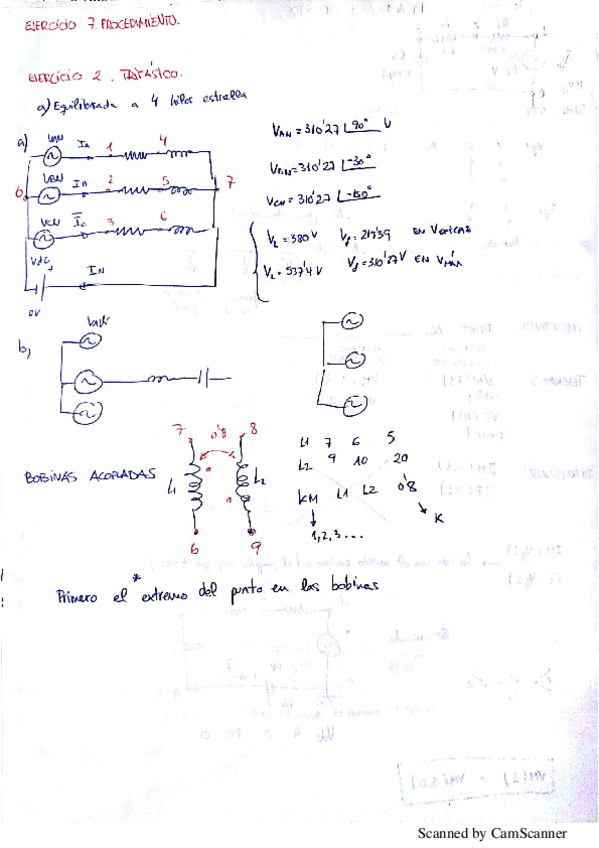 EJERCICIO 7. PROCEDIMIENTO.
EJERCICIO 2. TRIFÁSICO.
a) Equilibrada a 4 hilos estrella
a)
VAN IA 1 4
VBN IB 2 5
6 7
VCN IC 3 6
VDC +
IN
0V
VAN = 310'27 |90° V
VBN = 310'27 |-30°
VCN = 310'27 |-150°
VL = 380 V Vf = 219'39 EN VEFICAZ
VL = 537'4 V Vf = 310'27 V EN VMÁX
b)
VAN
BOBINAS ACOPLADAS
7 0'8 8
L1 L2
6 9
L1 7 6 5
L2 9 10 20
KM L1 L2 0'8
1, 2, 3 ...
K
*
Primero el extremo del punto en las bobinas
Scanned by CamScanner